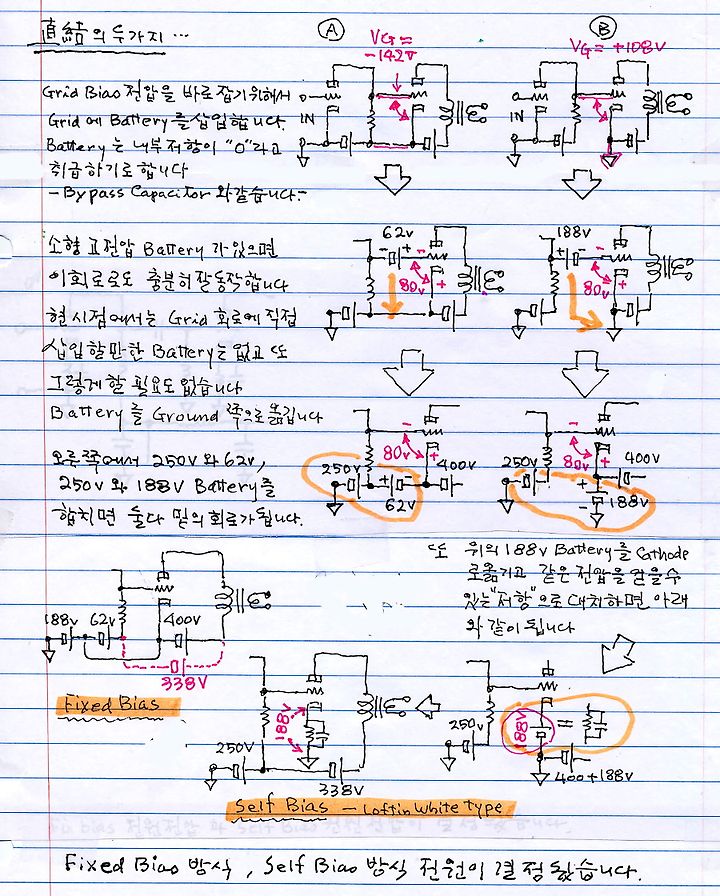 直結의 두가지 ...
A
B
VG =
-142V
VG = +108V
Grid Bias 전압을 바로잡기위해서
Grid에 Battery를 삽입합니다.
IN
IN
Battery는 내부저항이 "0"라고
취급하기로합니다
- Bypass Capacitor 와같습니다. -
62V
188V
소형 고전압 Battery 가 있으면
이회로로도 충분히 잘동작합니다
80V
80V
현시점에서는 Grid 회로에 직접
삽입할만한 Battery는 없고 또
그렇게할 필요도 없습니다
Battery를 Ground 쪽으로 옮깁니다
오른쪽에서 250V 와 62V,
250V 와 188V Battery를
합치면 둘다 밑의 회로가 됩니다.
250V
80V
400V
62V
250V
80V
400V
188V
또 위의 188V Battery를 Cathode
로옮기고 같은 전압을 얻을수
있는 "저항"으로 대치하면 아래
와 같이 됩니다
188V
62V
400V
338V
Fixed Bias
188V
250V
338V
250V
188V
=
400+188V
Self Bias - Loftin White type
Fixed Bias 방식, Self Bias 방식 전원이 결정됐습니다.